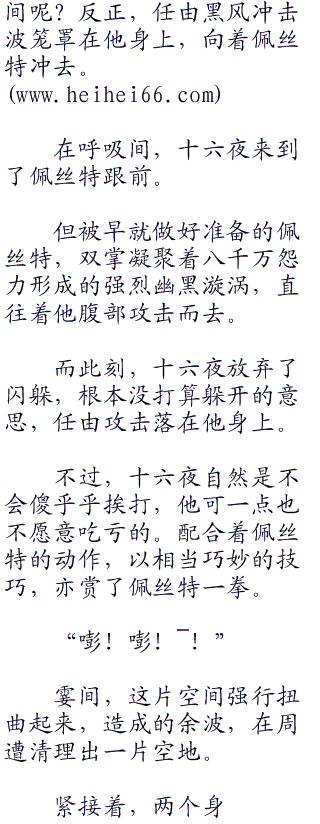 间呢？反正，任由黑风冲击
波笼罩在他身上，向着佩丝
特冲去。
(www.heihei66.com)
在呼吸间，十六夜来到
了佩丝特跟前。
但被早就做好准备的佩
丝特，双掌凝聚着八千万怨
力形成的强烈幽黑漩涡，直
往着他腹部攻击而去。
而此刻，十六夜放弃了
闪躲，根本没打算躲开的意
思，任由攻击落在他身上。
不过，十六夜自然是不
会傻乎乎挨打，他可一点也
不愿意吃亏的。配合着佩丝
特的动作，以相当巧妙的技
巧，亦赏了佩丝特一拳。
“嘭！嘭！¯！”
霎间，这片空间强行扭
曲起来，造成的余波，在周
遭清理出一片空地。
紧接着，两个身